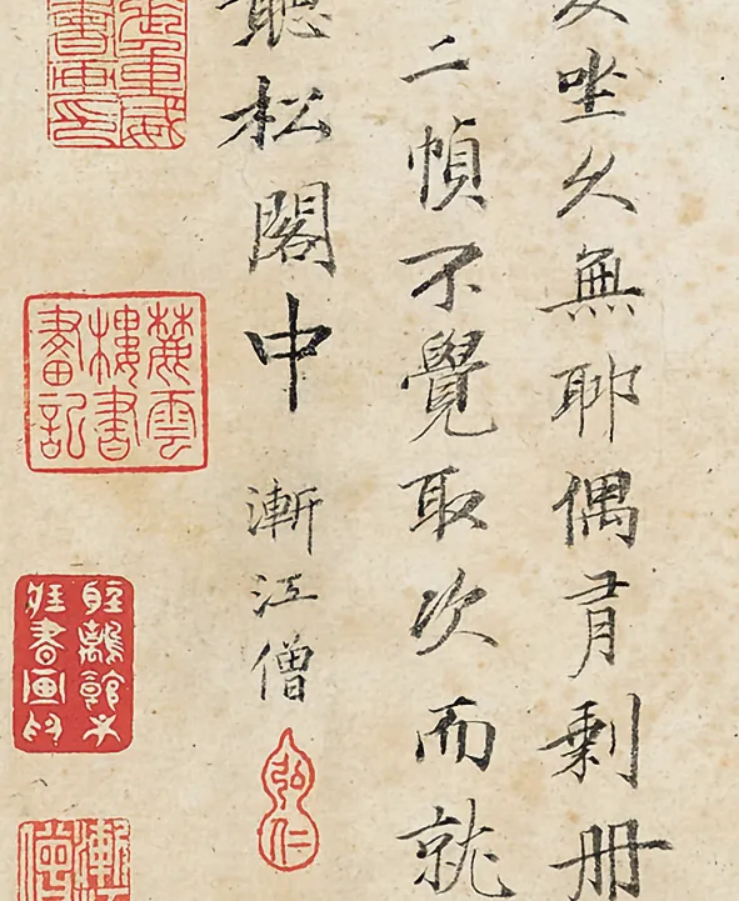 坐久無聊偶有剩冊
二幀不覺取次而就
聽松閣中 漸江僧
弘仁
麓雲樓書畫記